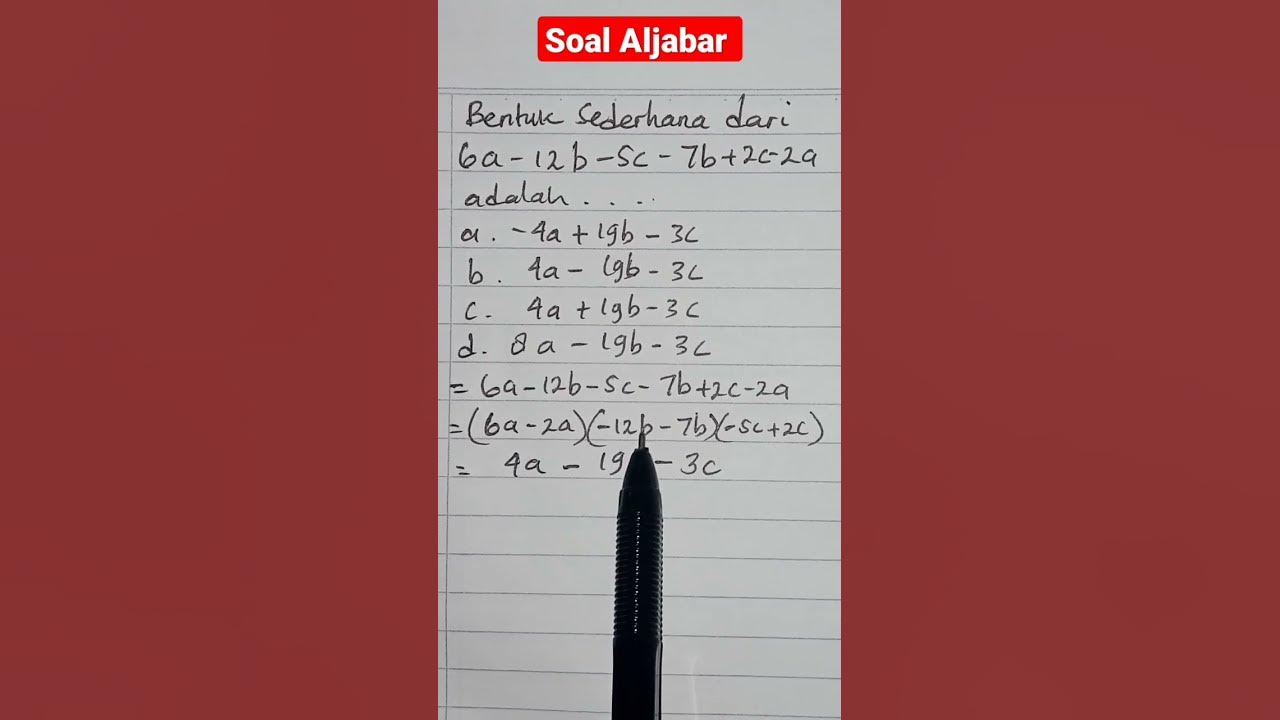 Soal Aljabar
Bentuk Sederhana dari
6a - 12b - 5c - 7b + 2c - 2a
adalah . . . .
a. -4a + 19b - 3c
b. 4a - 19b - 3c
c. 4a + 19b - 3c
d. 8a - 19b - 3c
= 6a - 12b - 5c - 7b + 2c - 2a
= (6a - 2a)(-12b - 7b)(-5c + 2c)
= 4a - 19 - 3c